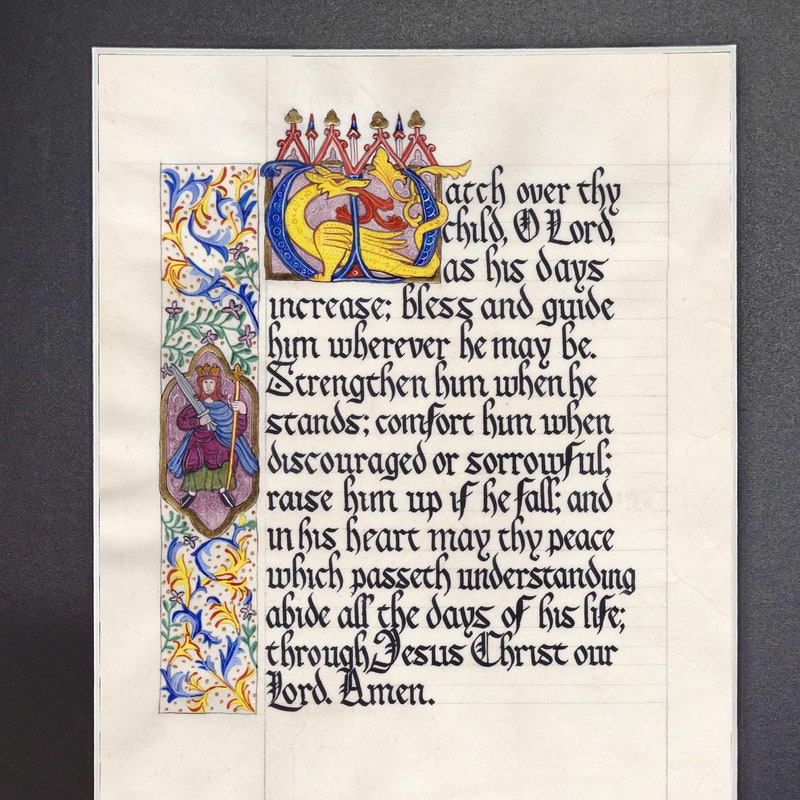 Watch over thy
child, O Lord,
as his days
increase; bless and guide
him wherever he may be.
Strengthen him when he
stands; comfort him when
discouraged or sorrowful;
raise him up if he fall; and
in his heart may thy peace
which passeth understanding
abide all the days of his life;
through Jesus Christ our
Lord. Amen.